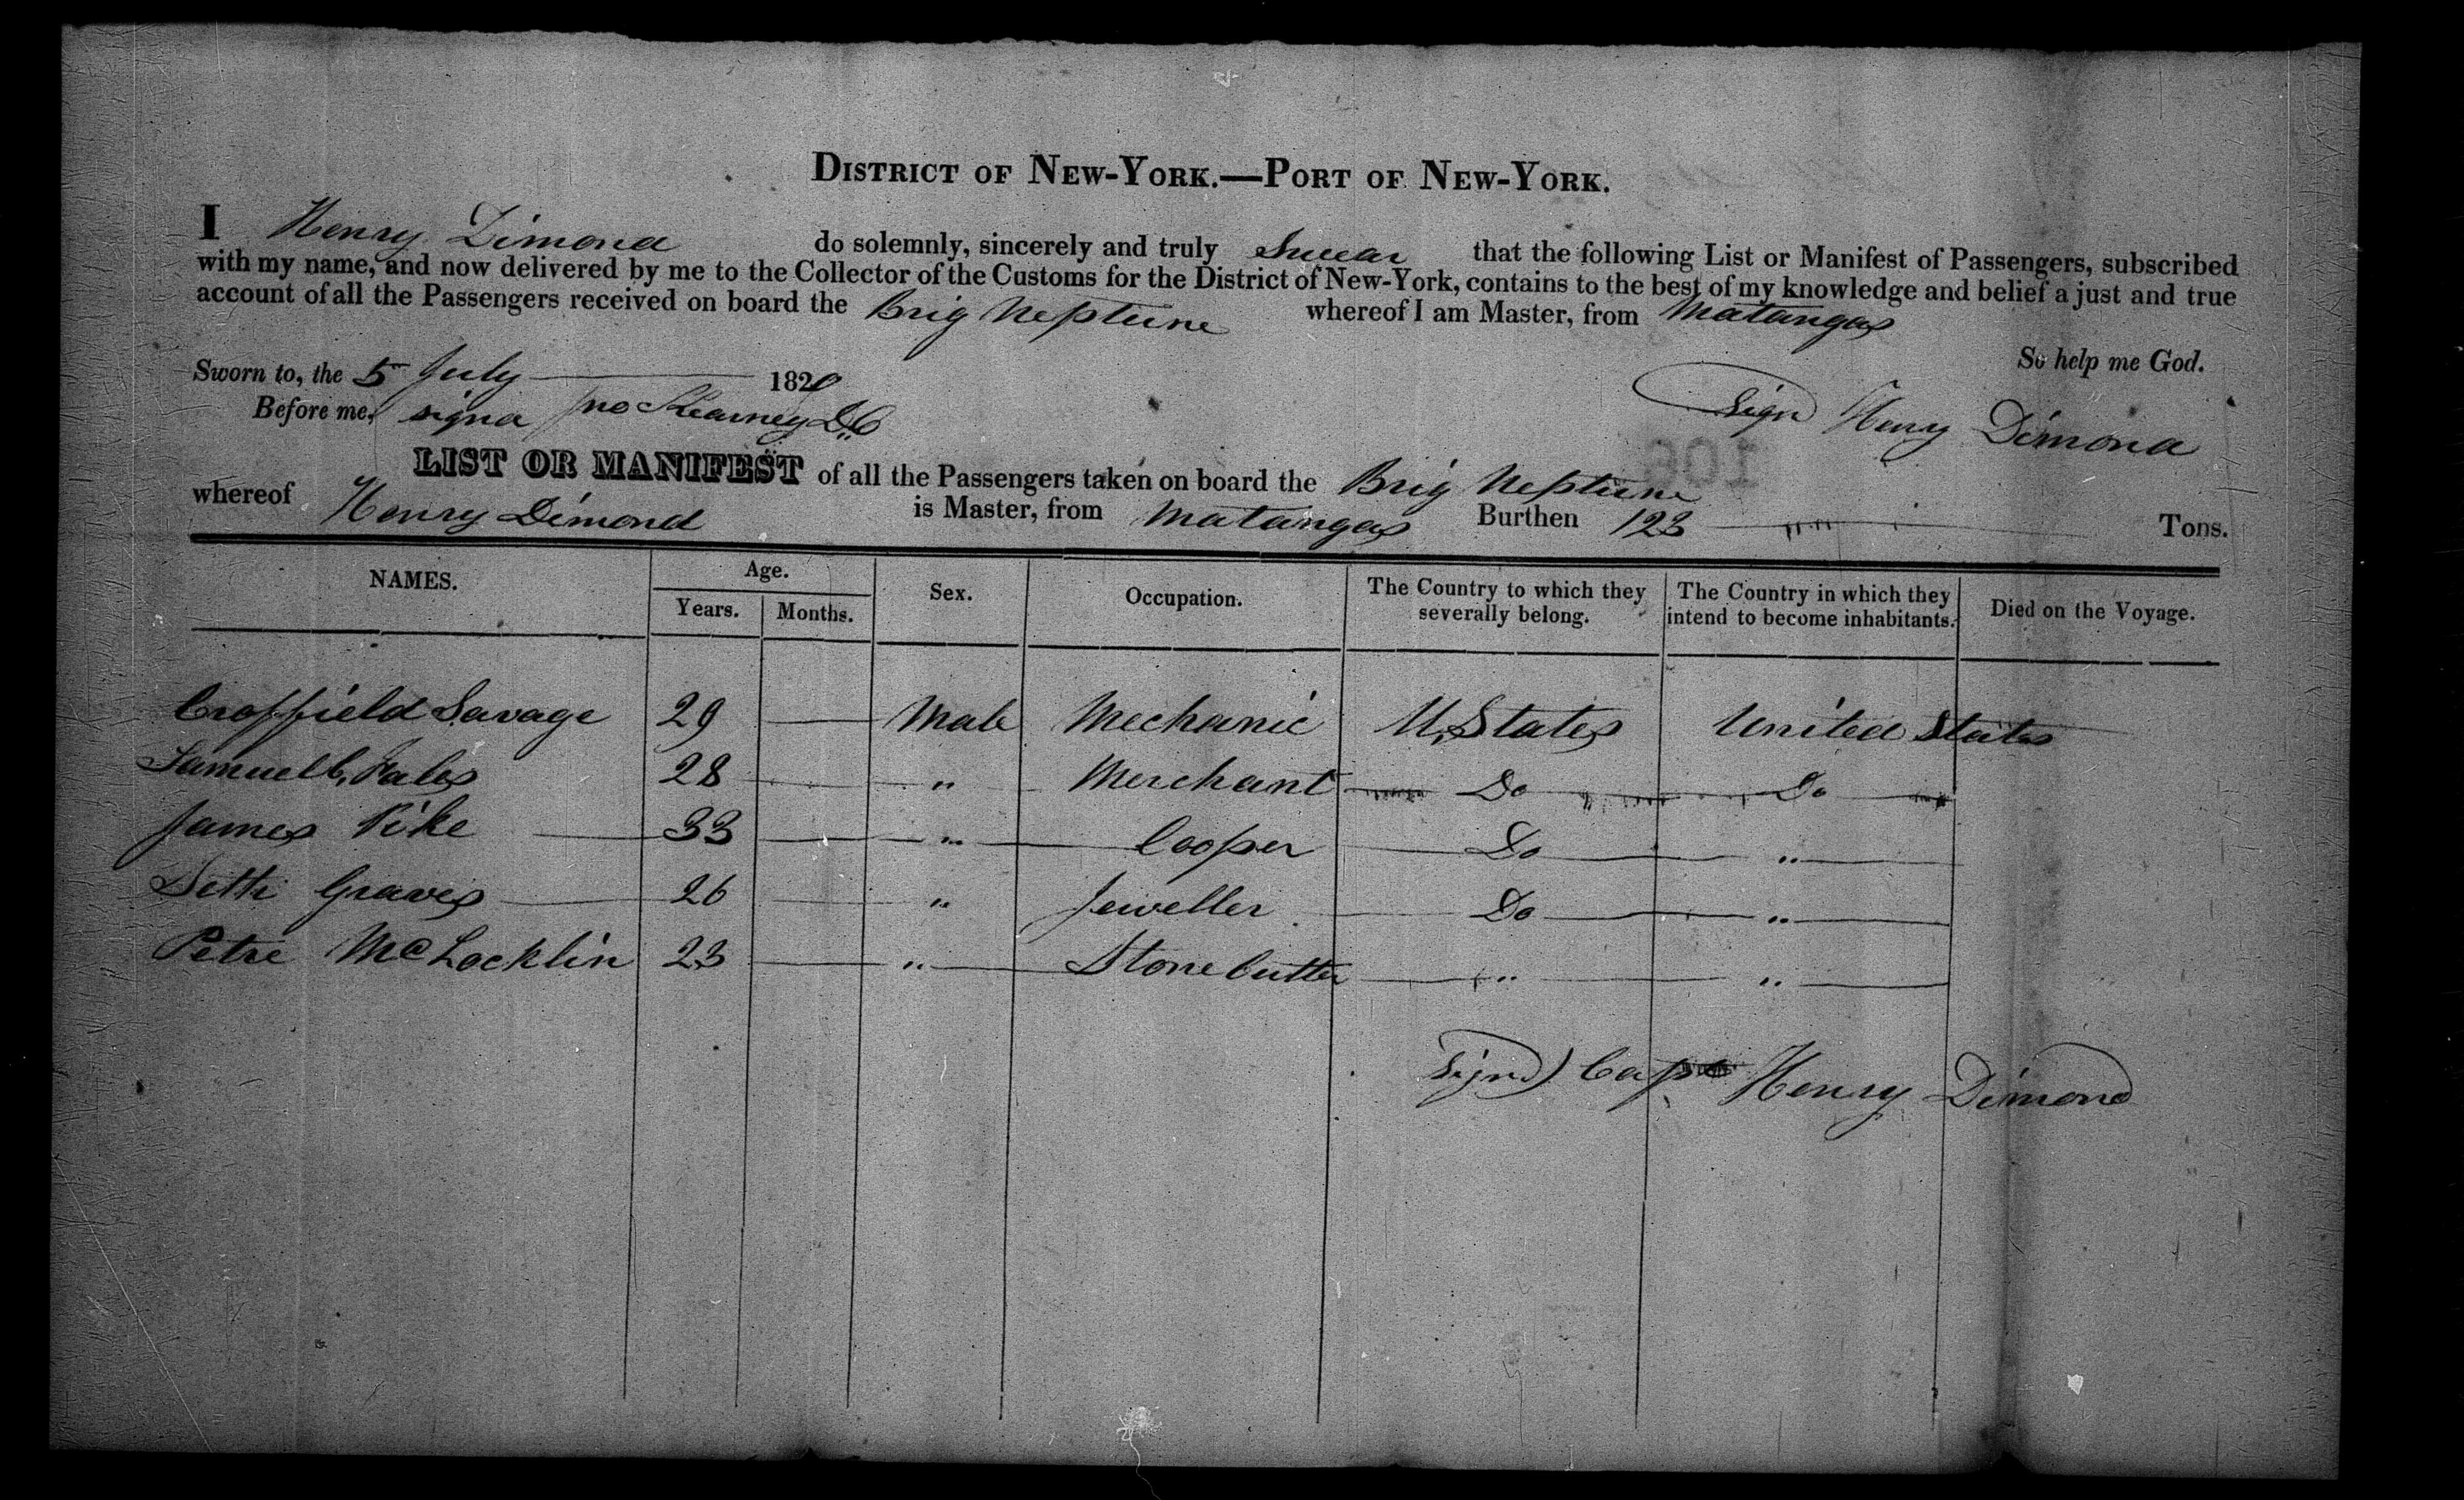 DISTRICT OF NEW-YORK.—PORT OF NEW-YORK.
I Henry Dimond do solemnly, sincerely and truly Swear that the following List or Manifest of Passengers, subscribed
with my name, and now delivered by me to the Collector of the Customs for the District of New-York, contains to the best of my knowledge and belief a just and true
account of all the Passengers received on board the Brig Neptune whereof I am Master, from Matangas
So help me God.
Sworn to, the 5 July 1820
Before me, signd Jno Kearney D.C
Sign Henry Dimond
LIST OR MANIFEST of all the Passengers taken on board the Brig Neptune
whereof Henry Dimond is Master, from Matangas Burthen 123 Tons.
NAMES. Age. Sex. Occupation. The Country to which they severally belong. The Country in which they intend to become inhabitants. Died on the Voyage.
Years. Months.
Croffield Savage 29 — Male Mechanic U. States United States
Samuel C. Fales 28 — " Merchant Do Do
James Pike 33 — " Cooper Do "
Seth Graves 26 — " Jeweller Do "
Petre McLocklin 23 — " Stone Cutter " "
Signd) Capt Henry Dimond